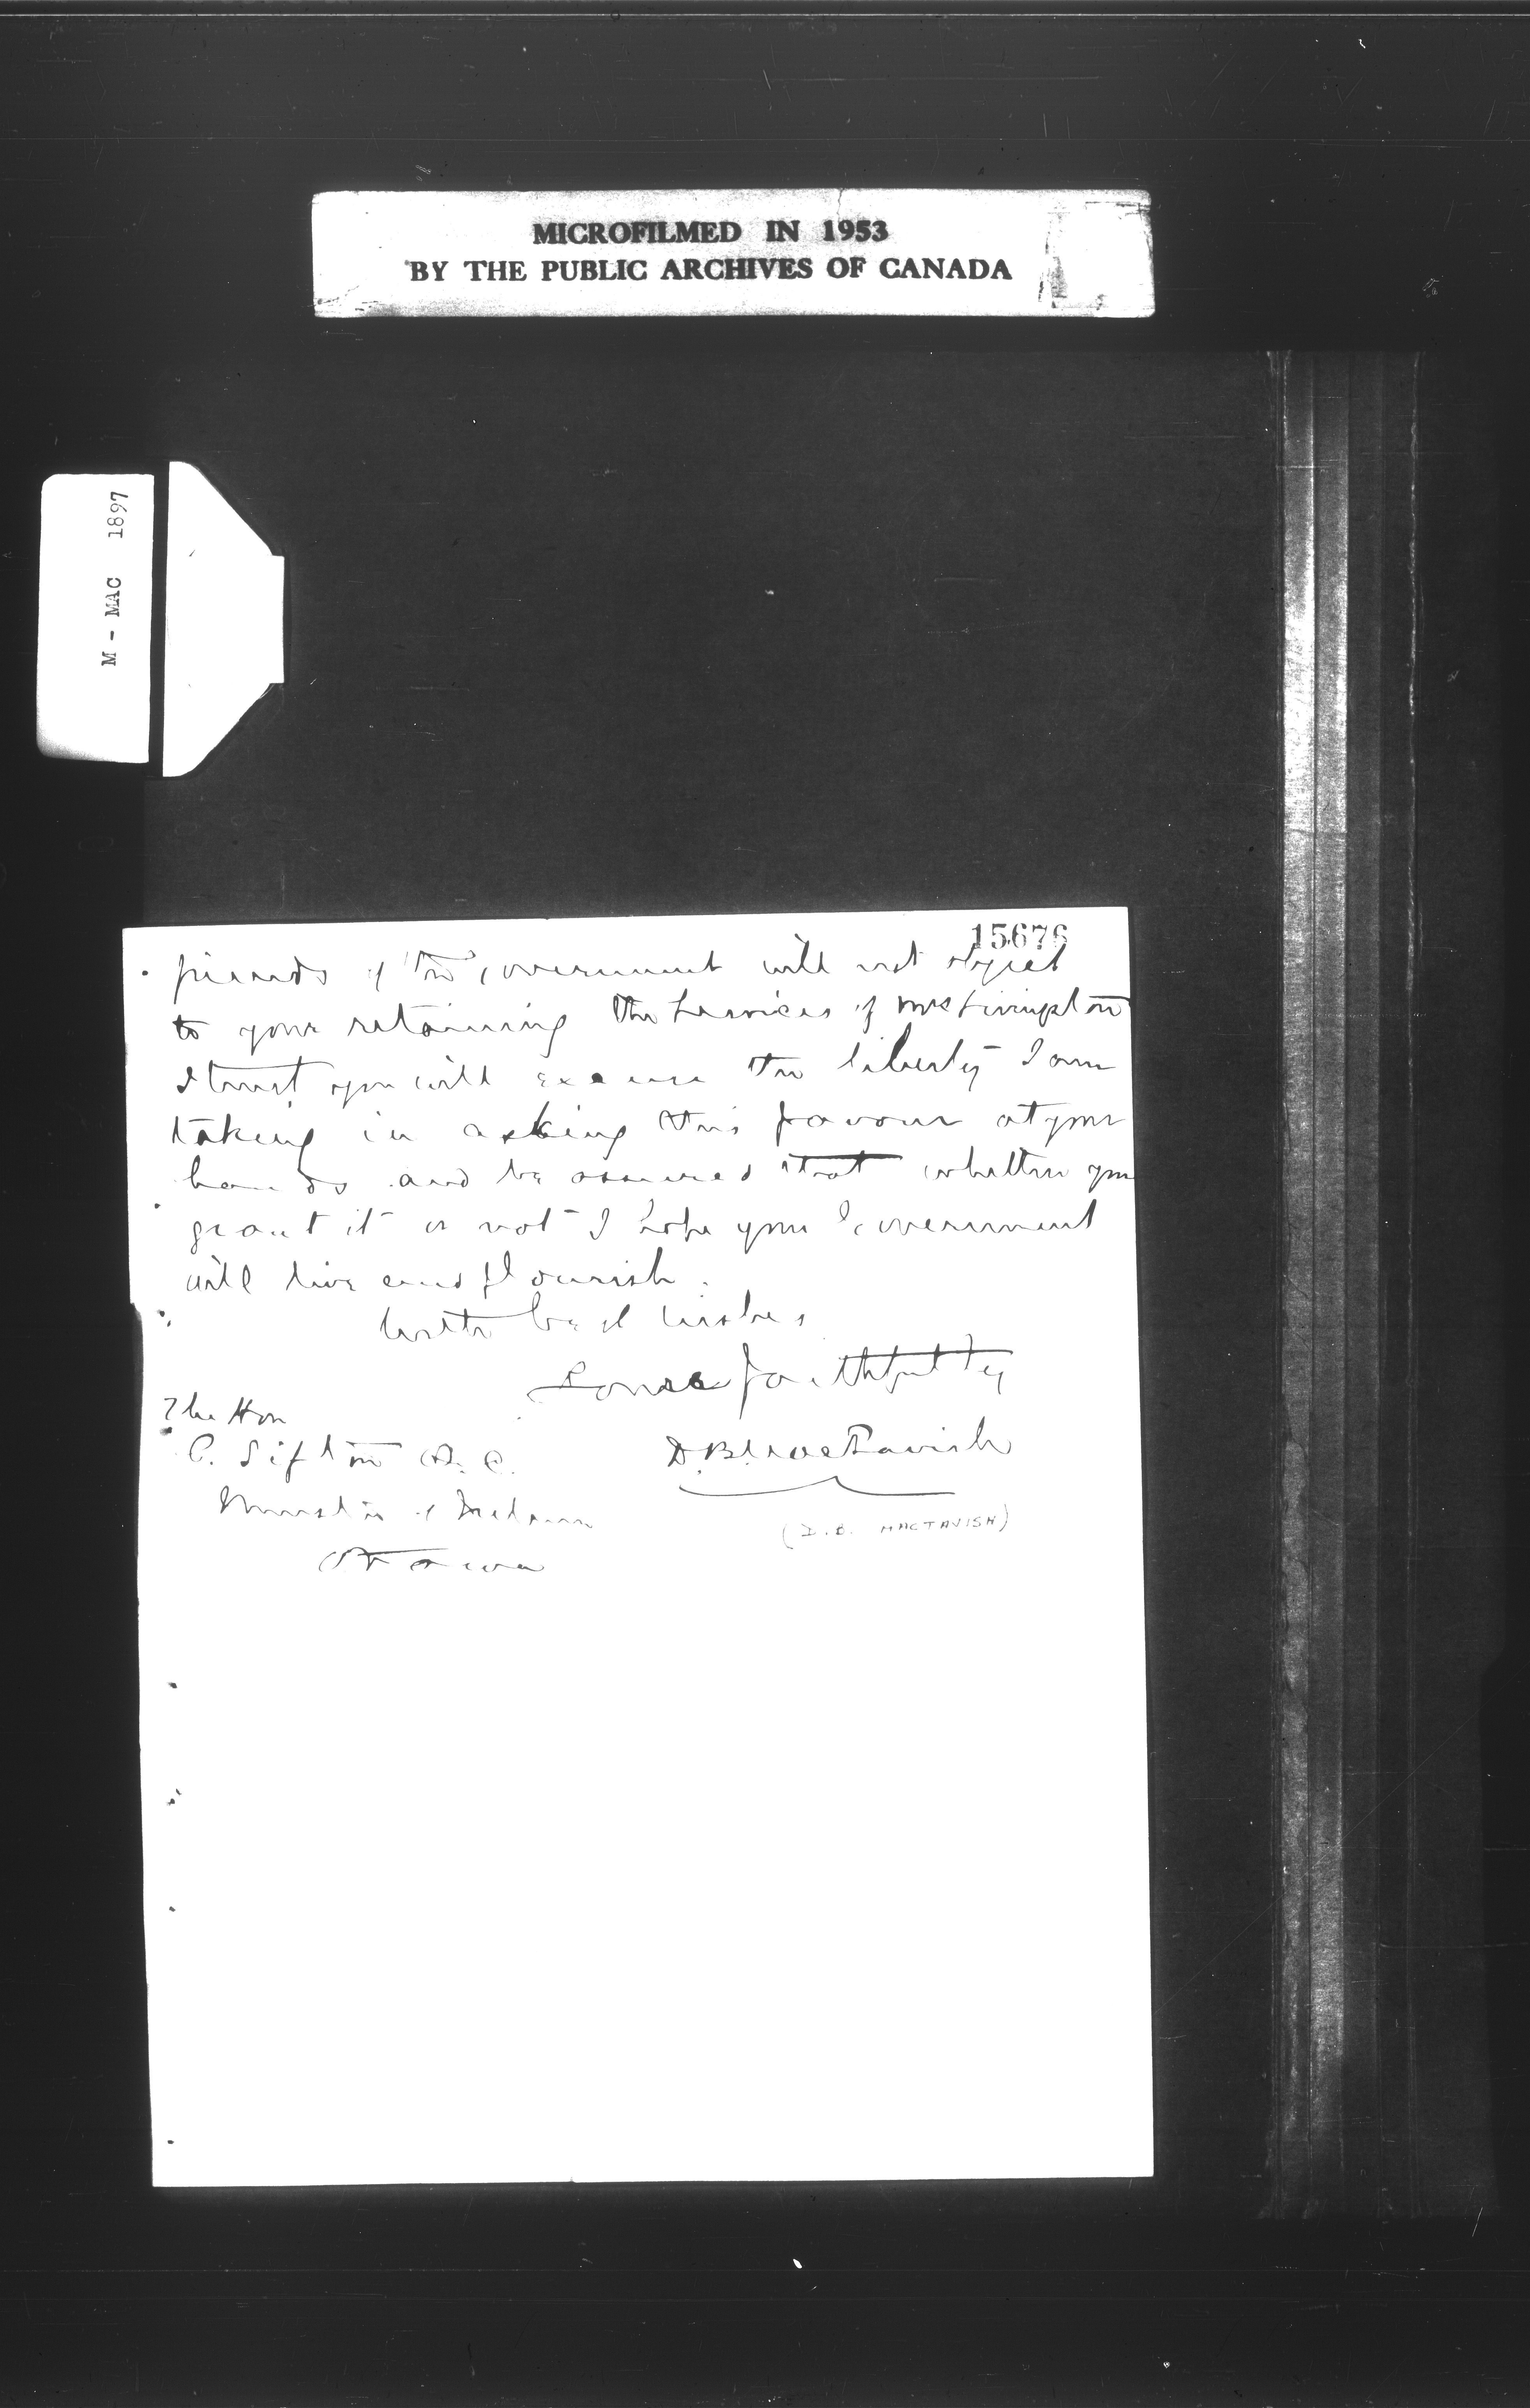 MICROFILMED IN 1953
BY THE PUBLIC ARCHIVES OF CANADA
M - MAC 1897
15676
friends of the Government will not object
to your retaining the services of Mrs Livingston
I trust you will excuse the liberty I am
taking in asking this favour at your
hands and be assured that whether you
grant it or not I hope your Government
will live and flourish.
With best wishes
Yours faithfully
The Hon
C. Sifton Q.C.
D. B. MacTavish
Minister of Interior
(D. B. MACTAVISH)
Ottawa